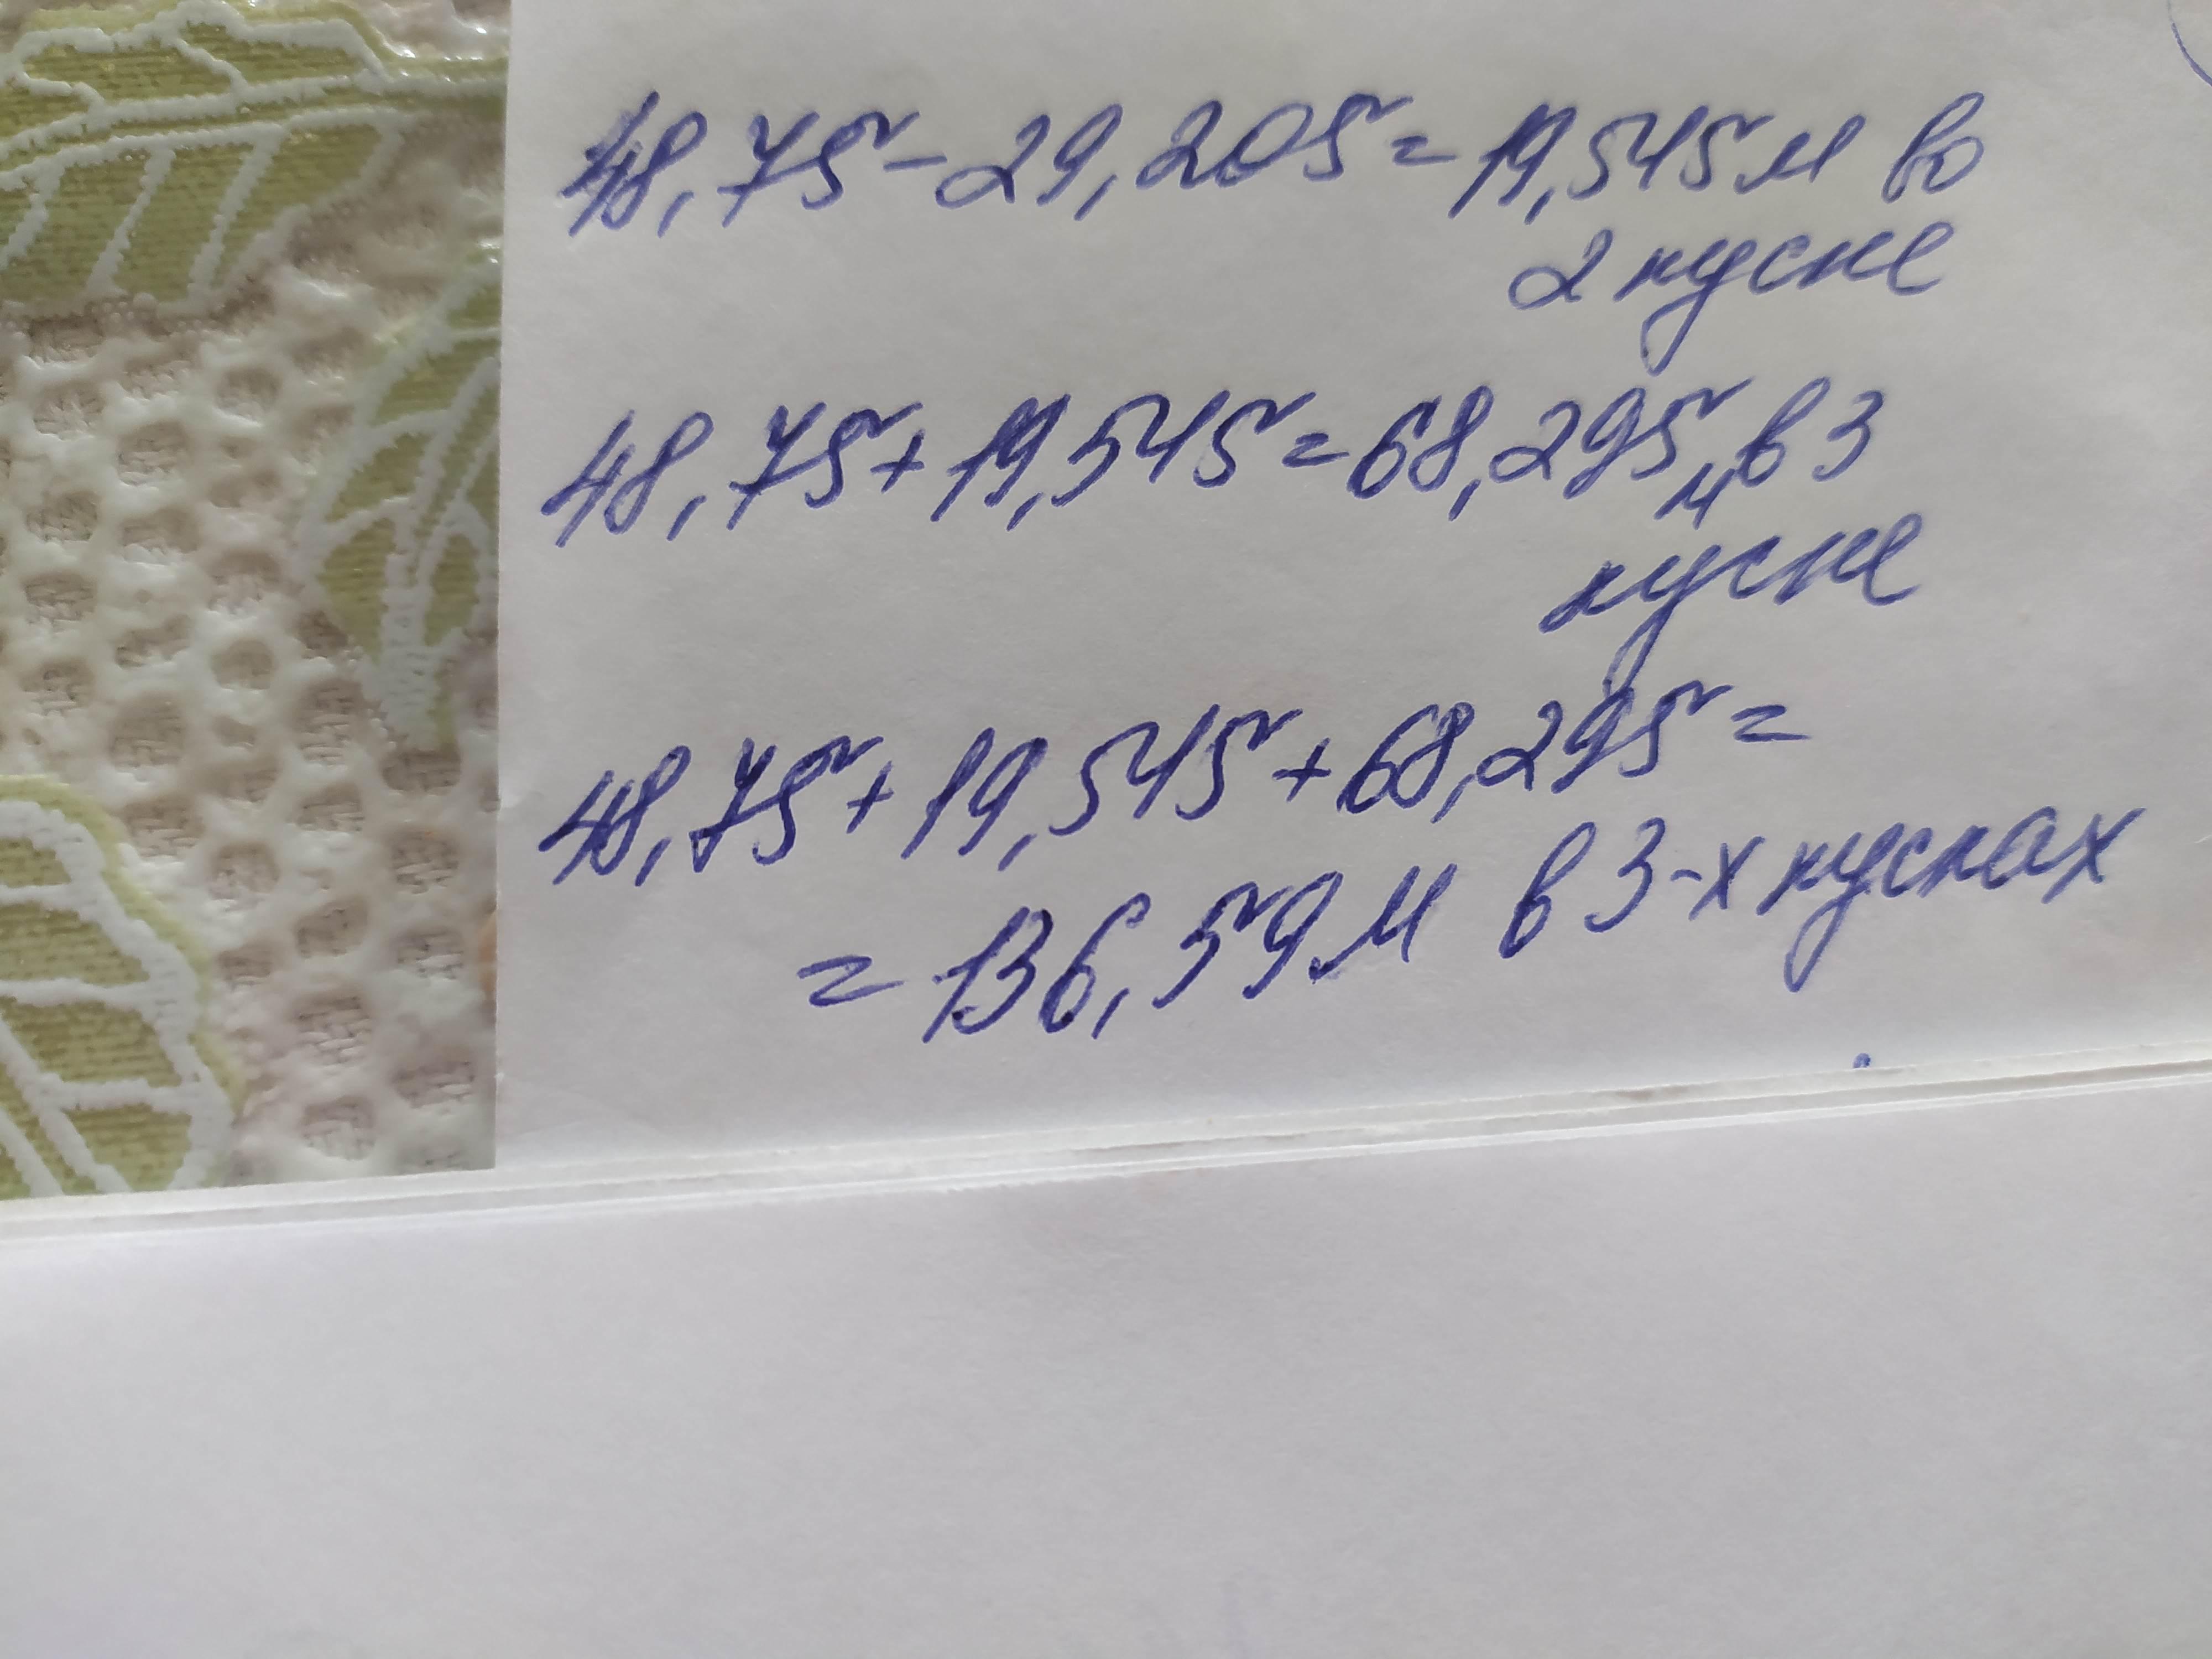 48,75-29,205=19,545м во
2 куске
48,75+19,545=68,295м в 3
куске
48,75+19,545+68,295=
=136,59м в 3-х кусках